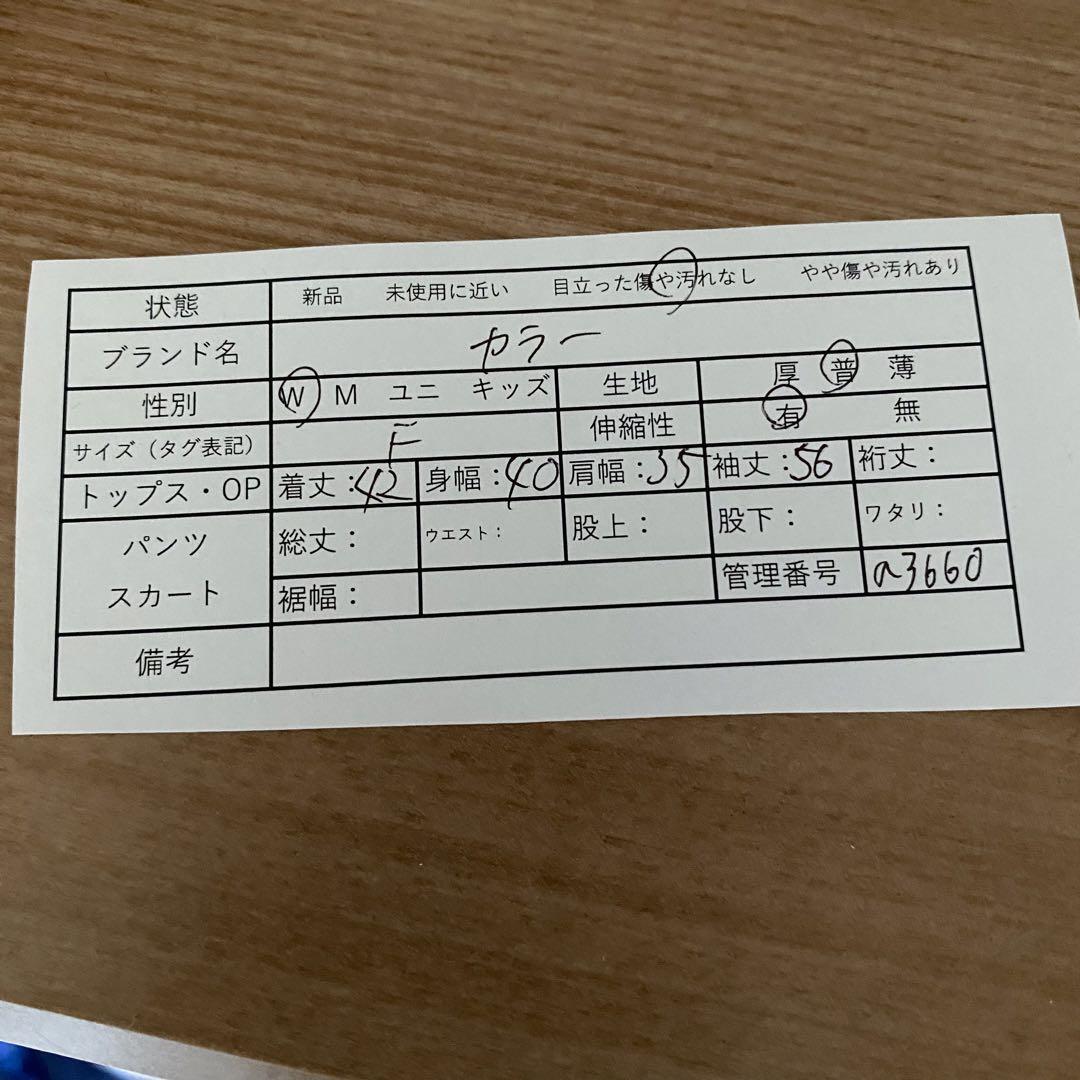 状態 新品 未使用に近い 目立った傷や汚れなし やや傷や汚れあり
ブランド名 カラー
性別 W M ユニ キッズ 生地 厚 普 薄
サイズ（タグ表記） F 伸縮性 有 無
トップス・OP 着丈：42 身幅：40 肩幅：35 袖丈：56 裄丈：
パンツ スカート 総丈： ウエスト： 股上： 股下： ワタリ：
裾幅： 管理番号 a3660
備考